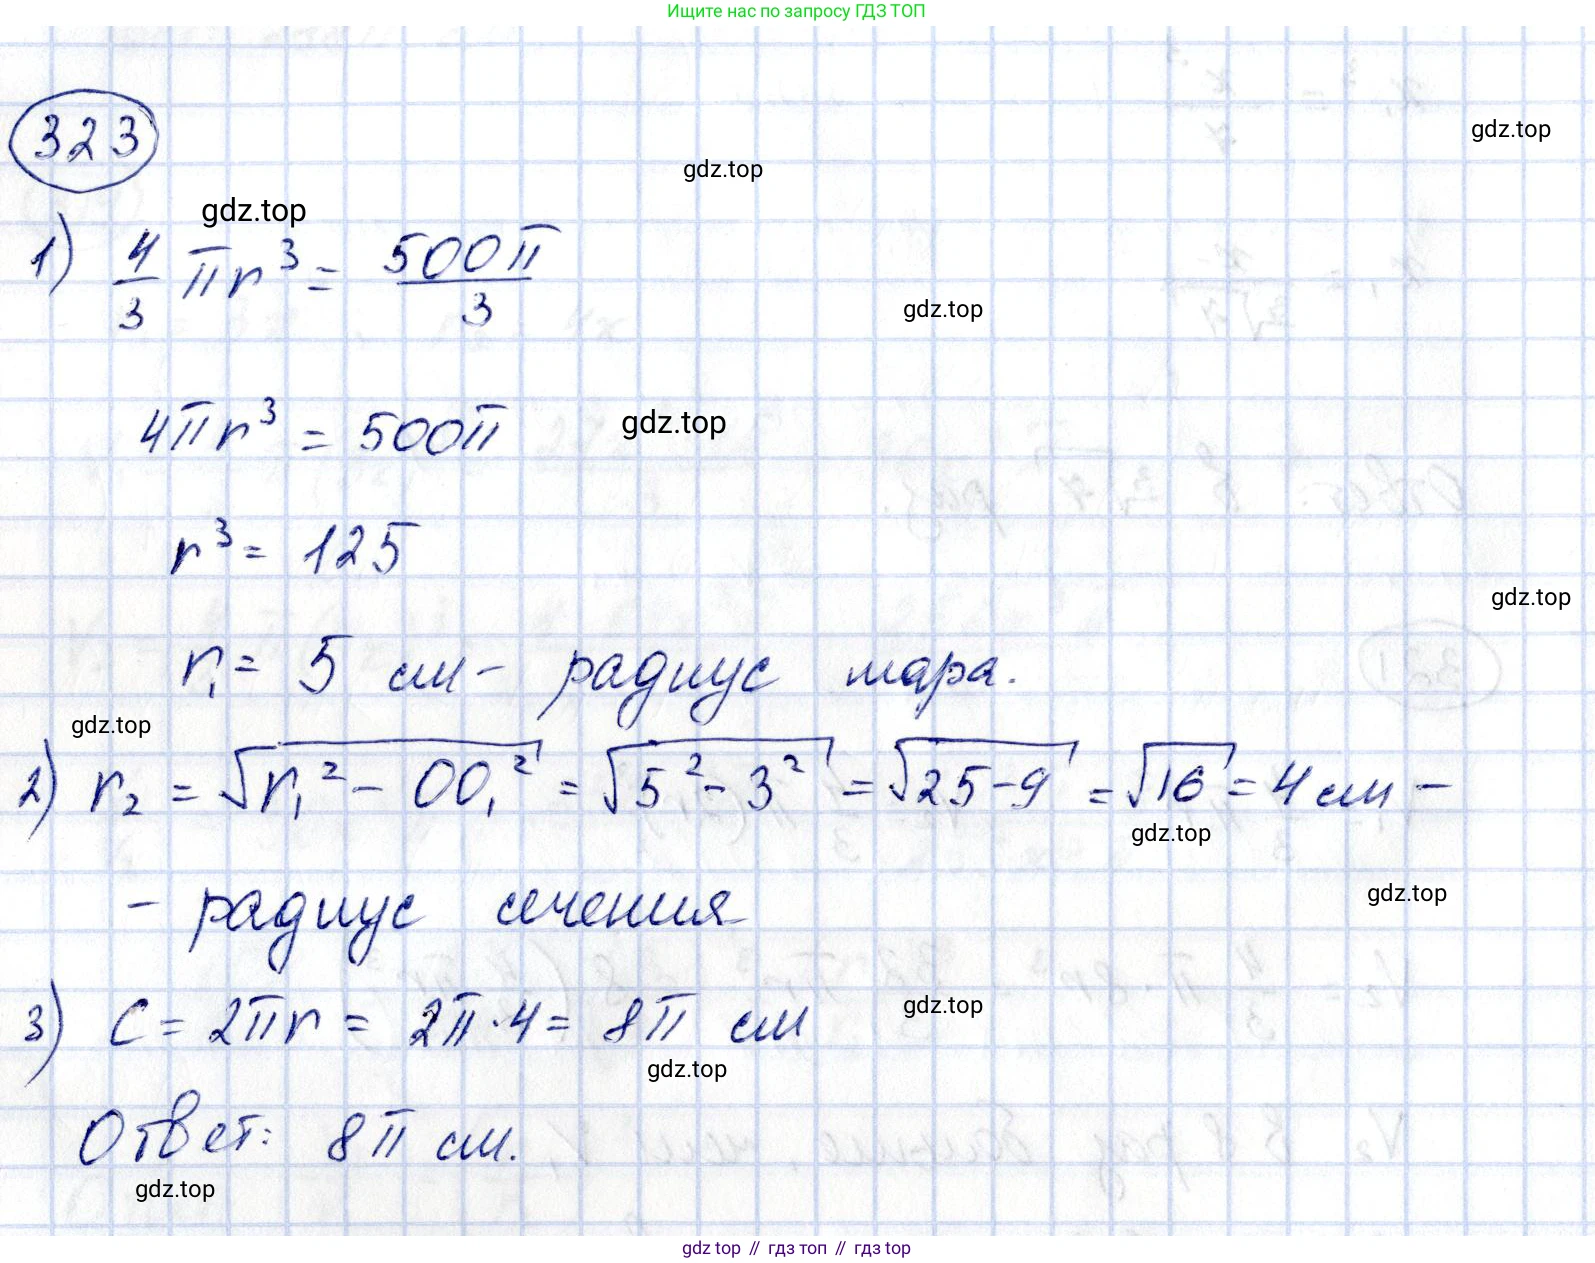 Ищите нас по запросу ГДЗ ТОП
323
gdz.top
gdz.top
gdz.top
1) 4/3 πr³ = 500π/3
gdz.top
4πr³ = 500π
gdz.top
r³ = 125
gdz.top
r₁ = 5 см - радиус шара.
gdz.top
2) r₂ = √(r₁² - OO₁²) = √(5² - 3²) = √(25 - 9) = √16 = 4 см -
gdz.top
gdz.top
- радиус сечения
3) C = 2πr = 2π · 4 = 8π см
gdz.top
gdz.top
Ответ: 8π см.
gdz.top
gdz.top // гдз топ // гдз.top